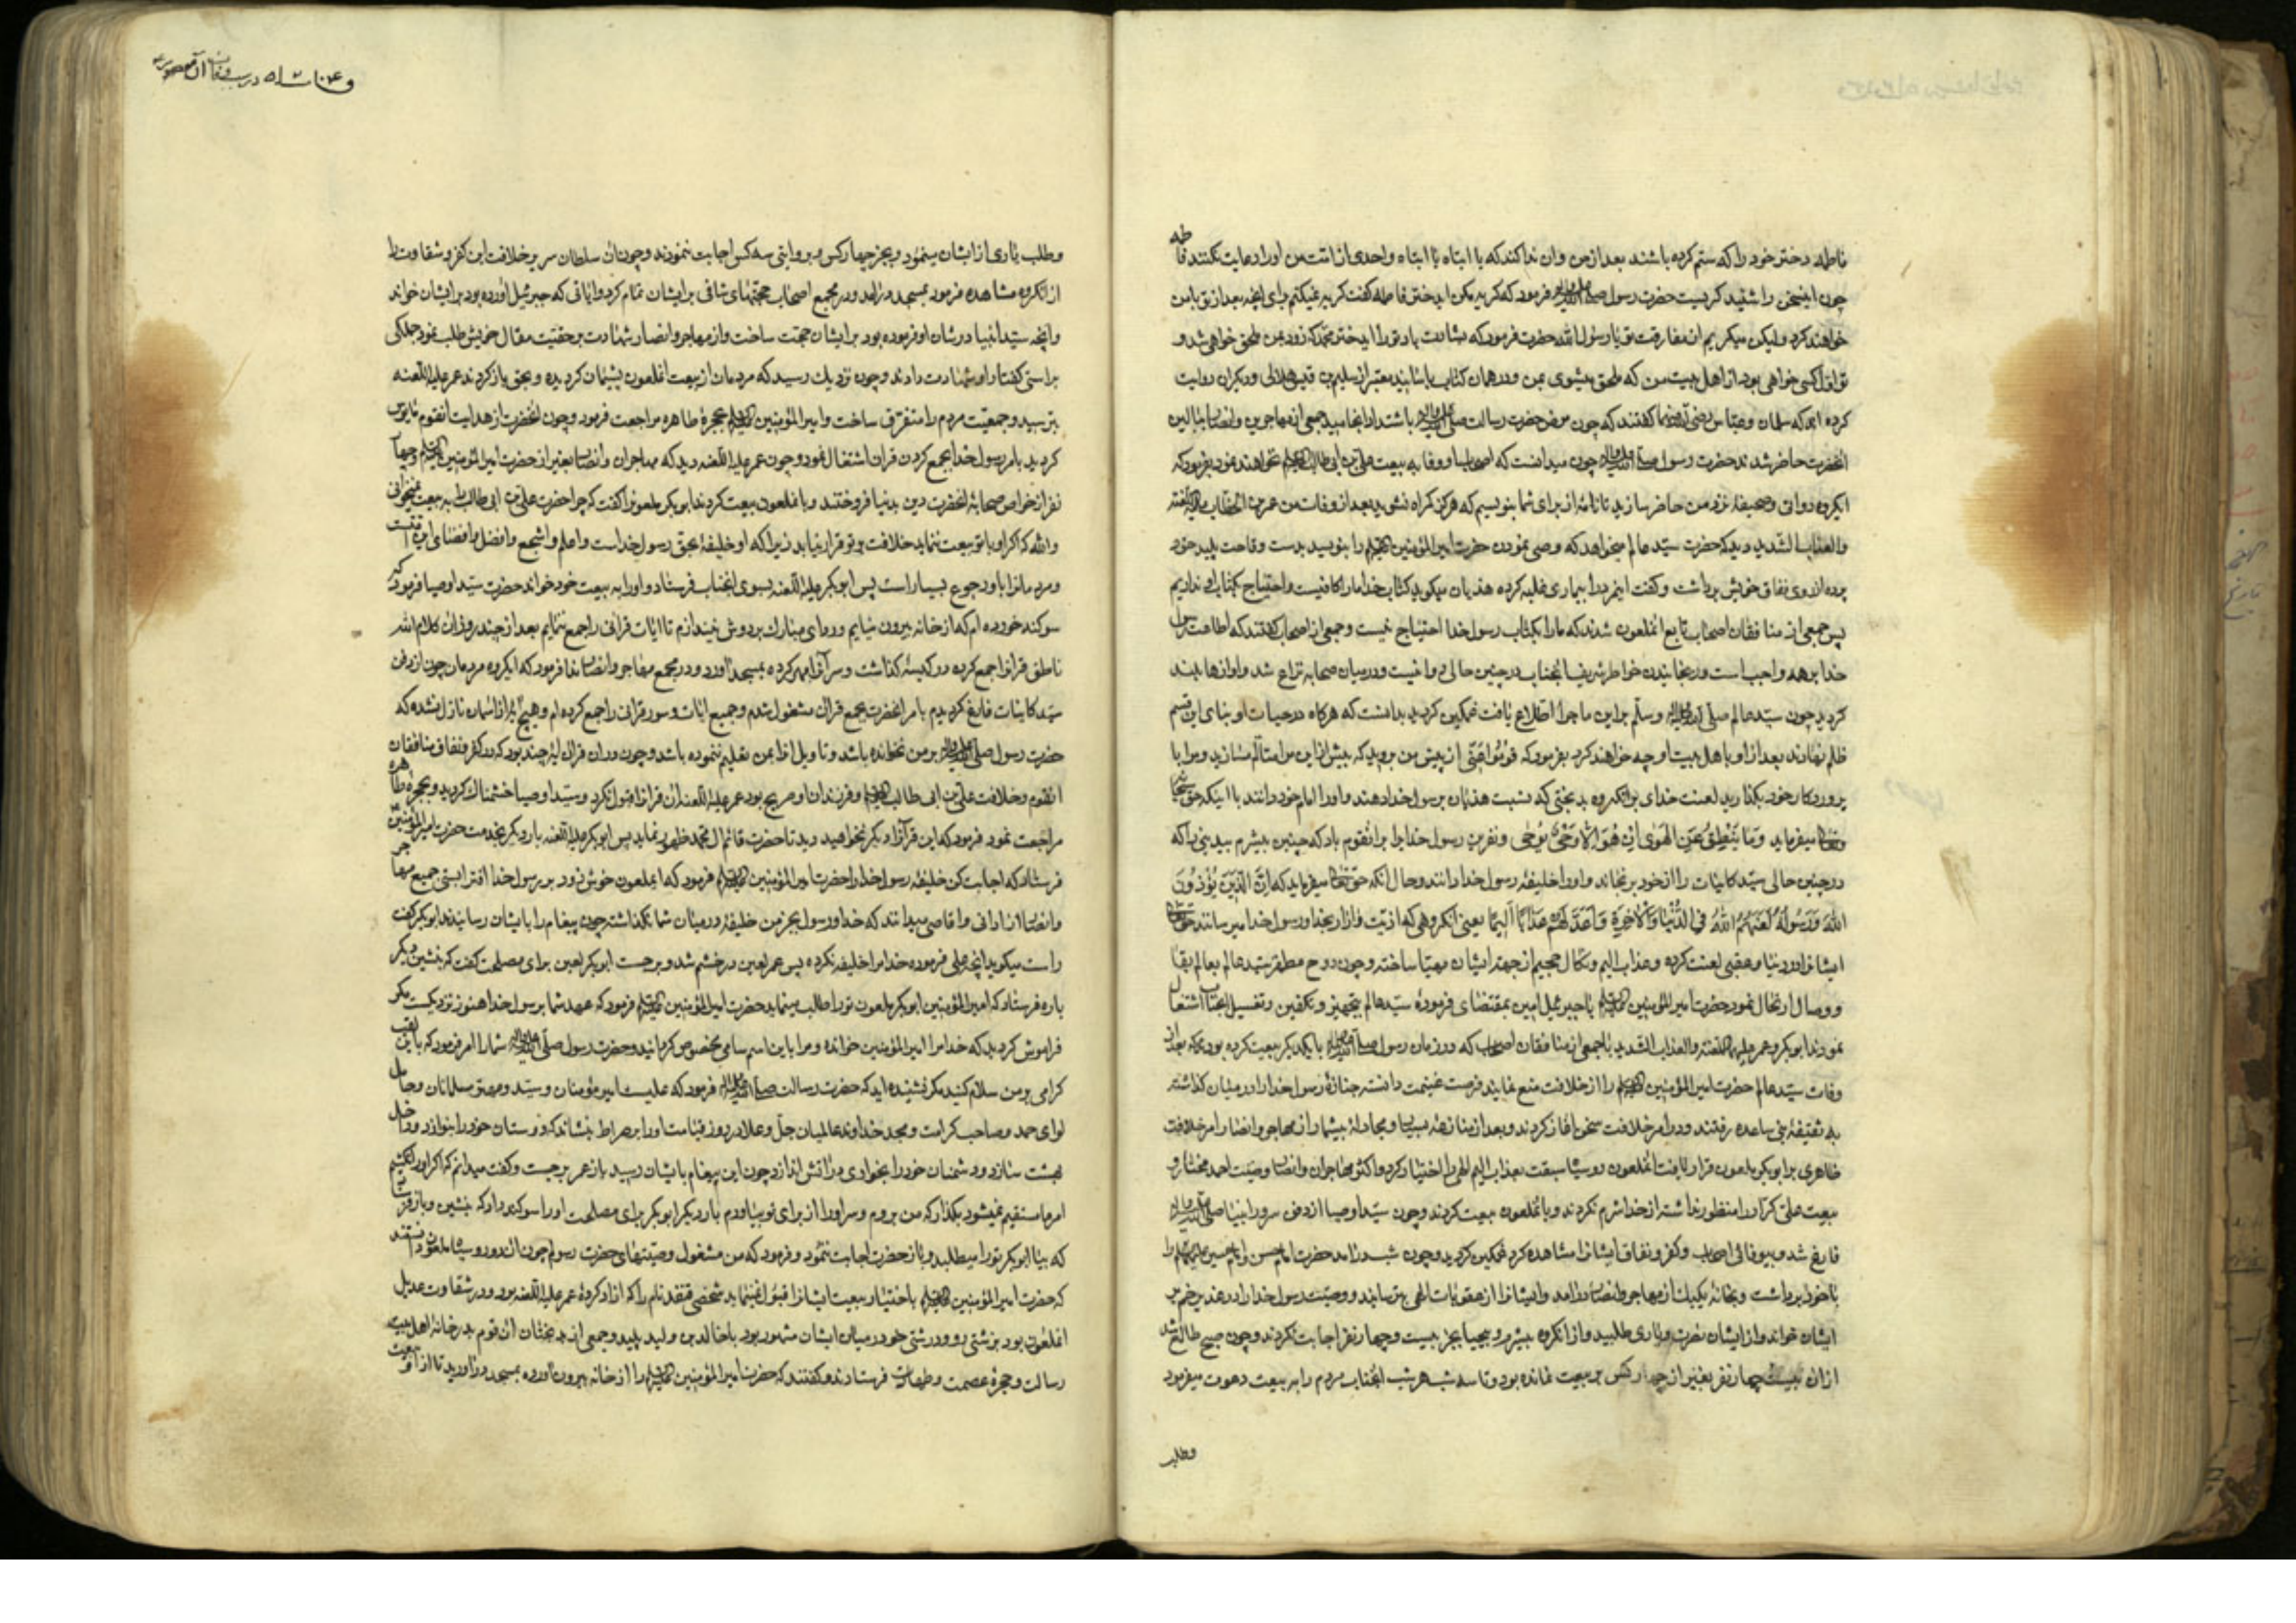 فاطمه دختر خود را که ستم کرده باشند بعد از من و ان ندا کند که یا ابتاه یا ابتاه و احدی از امت من او را رعایت نکنند فاطمه
چون اینسخن را شنید کریست حضرت رسول صلی الله علیه واله فرمود که کریه مکن ایدختر فاطمه کفت کریه نمیکنم برای انچه بعد از تو با من
خواهند کرد ولیکن میکریم از مفارقت تو یا رسول الله حضرت فرمود که بشارت باد تو را ایدختر محمد که زود بمن ملحق خواهی شد و
تو اول کسی خواهی بود از اهل بیت من که ملحق میشوی بمن و در همان کتاب باسانید معتبر از سلیم بن قیس هلالی و دیکران روایت
کرده اند که سلمان و عباس رضی الله عنهما کفتند که چون مرض حضرت رسالت صلی الله علیه واله باشتداد انجامید جمعی از مهاجرین و انصار ببالین
انحضرت حاضر شدند حضرت رسول صلی الله علیه واله چون میدانست که اصحاب او وفا به بیعت علی بن ابی طالب علیه السلم نخواهند نمود بفرمود که
ایکروه دواتی و صحیفهٔ نزد من حاضر سازید تا نامهٔ از برای شما بنویسیم که هرکز کمراه نشوید بعد از وفات من عمر بن الخطاب علیه اللعنه
والعذاب الشدید دید که حضرت سید عالم میخواهد که وصی نمودن حضرت امیر المؤمنین علیه السلم را بنویسد بدست وقاحت پلید خود
پرده از روی نفاق خویش برداشت و کفت اینمرد را بیماری غلبه کرده هذیان میکوید کتاب خدا ما را کافیست و احتیاج بکتابی نداریم
پس جمعی از منافقان اصحاب تابع انملعون شدند که ما را بکتاب رسول خدا احتیاج نیست و جمعی از اصحاب کفتند که اطاعت رسول
خدا بر همه واجب است و رنجانیدن خواطر شریف انجناب در چنین حالی روا نیست و در میان صحابه نزاع شد و اوازها بلند
کردید چون سید عالم صلی الله علیه واله وسلم بر این ماجرا اطلاع یافت غمکین کردید بدانست که هرکاه در حیات او بنای این قسم
ظلم نهادند بعد از او با اهل بیت او چه خواهند کرد بفرمود که قوموا عنی از پیش من بروید که بیش از این مرا متالم مسازید و مرا با
پروردکار خود بکذارید لعنت خدای بر انکروه بدبختی که نسبت هذیان برسول خدا دهند و او را امام خود دانند با اینکه حق سبحانه
وتعالی میفرماید وَمَا یَنْطِقُ عَنِ الْهَوٰی اِنْ هُوَ اِلّا وَحْیٌ یُوحٰی و نفرین رسول خدا بر انقوم باد که چنین بیشرم بیدینی را که
در چنین حالی سید کاینات را از خود برنجاند و او را خلیفهٔ رسول خدا دانند و حال انکه حق تعالی میفرماید که اِنَّ الَّذِینَ یُؤْذُونَ
اللهَ وَرَسُولَهُ لَعَنَهُمُ اللهُ فِی الدُّنْیَا وَالْآخِرَةِ وَاَعَدَّ لَهُمْ عَذَابًا اَلِیمًا یعنی انکروهی که اذیت و ازار بخدا و رسول خدا میرسانند حق تعالی
ایشانرا در دنیا و عقبی لعنت کرده و عذاب الیم و نکال جحیم از جهة ایشان مهیا ساخته و چون روح مطهر سید عالم بعالم بقا
و وصال ارتحال نمود حضرت امیر المؤمنین علیه السلم با جبرئیل امین بمقتضای فرمودهٔ سید عالم بتجهیز و تکفین و تغسیل انجناب اشتغال
نمودند ابوبکر و عمر علیهما اللعنه والعذاب الشدید با جمعی از منافقان اصحاب که در زمان رسول صلی الله علیه واله با یکدیکر بیعت کرده بودند که بعد از
وفات سید عالم حضرت امیر المؤمنین علیه السلم را از خلافت منع نمایند فرصت غنیمت دانسته جنازهٔ رسول خدا را در میان کذاشته
به ثقیفهٔ بنی ساعده رفتند و در امر خلافت سخن اغاز کردند و بعد از منازعهٔ بسیار و مجادلهٔ بیشمار از مهاجر و انصار امر خلافت
ظاهری بر ابوبکر ملعون قرار یافت انملعون روسیا سبقت بعذاب الیم الهی را اختیار کرد و اکثر مهاجران و انصار وصیت احمد مختار و
بیعت علی کرار را منظور نداشته از خدا شرم نکردند و با انملعون بیعت کردند و چون سید اوصیا از دفن سرور انبیا صلی الله علیه واله
فارغ شد و بیوفائی اصحاب و کفر و نفاق ایشانرا مشاهده کرد غمکین کردید و چون شب درامد حضرت امام حسن و امام حسین علیهما السلم را
با خود برداشت و بخانهٔ یکیک از مهاجر و انصار درامد و ایشانرا از عقوبات الهی بترسانید و وصیت رسول خدا را در غدیر خم بر
ایشان خواند و از ایشان نصرت و یاری طلبید و از انکروه بیشرم و بیحیا بجز بیست و چهار نفر اجابت نکردند و چون صبح طالع شد
از ان بیست چهار نفر بغیر از چهار کس بر بیعت نمانده بود و تا سه شب هر شب انجناب مردم را به بیعت دعوت میفرمود
وطلب
وطلب یاری از ایشان مینمود و بجز چهار کس و بروایتی سه کس اجابت ننمودند و چون ان سلطان سریر خلافت این کفر و شقاوت را
از انکروه مشاهده فرمود بمسجد درامد و در مجمع اصحاب حجتهای شافی بر ایشان تمام کرد و ایاتی که جبرئیل اورده بود بر ایشان خواند
وانچه سید انبیا در شان او فرموده بود بر ایشان حجت ساخت و از مهاجر و انصار شهادت بر حقیت مقال خویش طلب نمود جملکی
براستی کفتار او شهادت دادند و چون نزدیك رسید که مردمان از بیعت انملعون پشیمان کردیده و بحق باز کردند عمر علیه اللعنه
بترسید و جمعیت مردم را متفرق ساخت و امیر المؤمنین علیه السلم بحجرهٔ طاهره مراجعت فرمود و چون انحضرت از هدایت انقوم مایوس
کردید بامر رسول خدا بجمع کردن قران اشتغال نمود و چون عمر علیه اللعنه دید که مهاجران و انصار بغیر از حضرت امیر المؤمنین علیه السلم و چهار
نفر از خواص صحابهٔ انحضرت دین بدنیا فروختند و با انملعون بیعت کردند ابوبکر ملعونرا کفت که چرا حضرت علی بن ابی طالب را به بیعت نمیخوانی
والله که اکر او با تو بیعت ننماید خلافت بر تو قرار نیابد زیرا که او خلیفهٔ بحق رسول خداست و اعلم و اشجع و افضل و اقضای این امت است
و مردمانرا باو رجوع بسیار است پس ابوبکر علیه اللعنه بسوی انجناب فرستاد و او را به بیعت خود خواند حضرت سید اوصیا فرمود که
سوکند خورده ام که از خانه بیرون نیایم و ردای مبارك بر دوش نیندازم تا ایات قرانی را جمع ننمایم بعد از چند روز ان کلام الله
ناطق قرانرا جمع کرده در کیسهٔ کذاشت و سر آنرا مهر کرده بمسجد آورد و در مجمع مهاجر و انصار ندا فرمود که ایکروه مردمان چون از دفن
سید کاینات فارغ کردیدم بامر انحضرت بجمع قران مشغول شدم و جمیع ایات و سور قرانی را جمع کرده ام و هیچ ایهٔ از اسمان نازل نشده که
حضرت رسول صلی الله علیه واله بر من نخوانده باشد و تاویل انرا بمن تعلیم ننموده باشد و چون در ان قران ایهٔ چند بود که در کفر و نفاق منافقان
انقوم و خلافت علی بن ابی طالب علیه السلم و فرزندان او صریح بود عمر علیه اللعنه ان قرانرا قبول نکرد و سید اوصیا خشمناك کردید و بحجرهٔ طاهره
مراجعت نمود فرمود که این قرآنرا دیکر نخواهید دید تا حضرت قائم ال محمد ظهور نماید پس ابوبکر علیه اللعنه بار دیکر بخدمت حضرت امیر المؤمنین
فرستاد که اجابت کن خلیفهٔ رسول خدا را حضرت امیر المؤمنین علیه السلم فرمود که ایملعون خوش زود بر رسول خدا افترا بستی جمیع مهاجر
و انصار از ادانی و اقاصی میدانند که خدا و رسول بجز من خلیفهٔ در میان شما نکذاشته چون پیغام را بایشان رسانیدند ابوبکر کفت
راست میکوید انچه علی فرموده خدا مرا خلیفه نکرده پس عمر لعین در خشم شد و برجست ابوبکر لعین برای مصلحت کفت که بنشین دیکر
باره فرستاد که امیر المؤمنین ابوبکر ملعون تو را طلب مینماید حضرت امیر المؤمنین علیه السلم فرمود که عهد شما برسول خدا هنوز نزدیکست مکر
فراموش کردید که خدا مرا امیر المؤمنین خوانده و مرا باین اسم سامی مخصوص کردانید و حضرت رسول صلی الله علیه واله شما را امر فرمود که باین لقب
کرامی بر من سلام کنید مکر نشنیده اید که حضرت رسالت صلی الله علیه واله فرمود که علیست امیر مؤمنان و سید و مهتر مسلمانان و حامل
لوای حمد و صاحب کرامت و مجد خداوند عالمیان جل و علا در روز قیامت او را بر صراط بنشاند که دوستان خود را بنوازد و داخل
بهشت سازد و دشمنان خود را بخواری در اتش اندازد چون این پیغام بایشان رسید باز عمر برجست و کفت میدانم که اکر او را نکشیم
امر ما مستقیم نمیشود بکذار که من بروم و سر او را از برای تو بیاورم بار دیکر ابوبکر برای مصلحت او را سوکند داد که بنشین و باز فرستاد
که بیا ابوبکر تو را میطلبد و باز حضرت اجابت ننمود و فرمود که من مشغول وصیتهای حضرت رسولم چون ان دو روسیاه ملعون دانستند
که حضرت امیر المؤمنین علیه السلم باختیار بیعت ایشانرا قبول نمینماید شخصی قنفذ نام را که ازاد کردهٔ عمر علیه اللعنه بود و در شقاوت عدیل
انملعون بود بزشتی رو و درشتی خو در میان ایشان مشهور بود با خالد بن ولید پلید و جمعی از بدبختان ان قوم بدر خانهٔ اهل بیت
رسالت و حجرهٔ عصمت و طهارت فرستادند و کفتند که حضرت امیر المؤمنین علیه السلم را از خانه بیرون آورده بمسجد در اورید تا از او بیعت